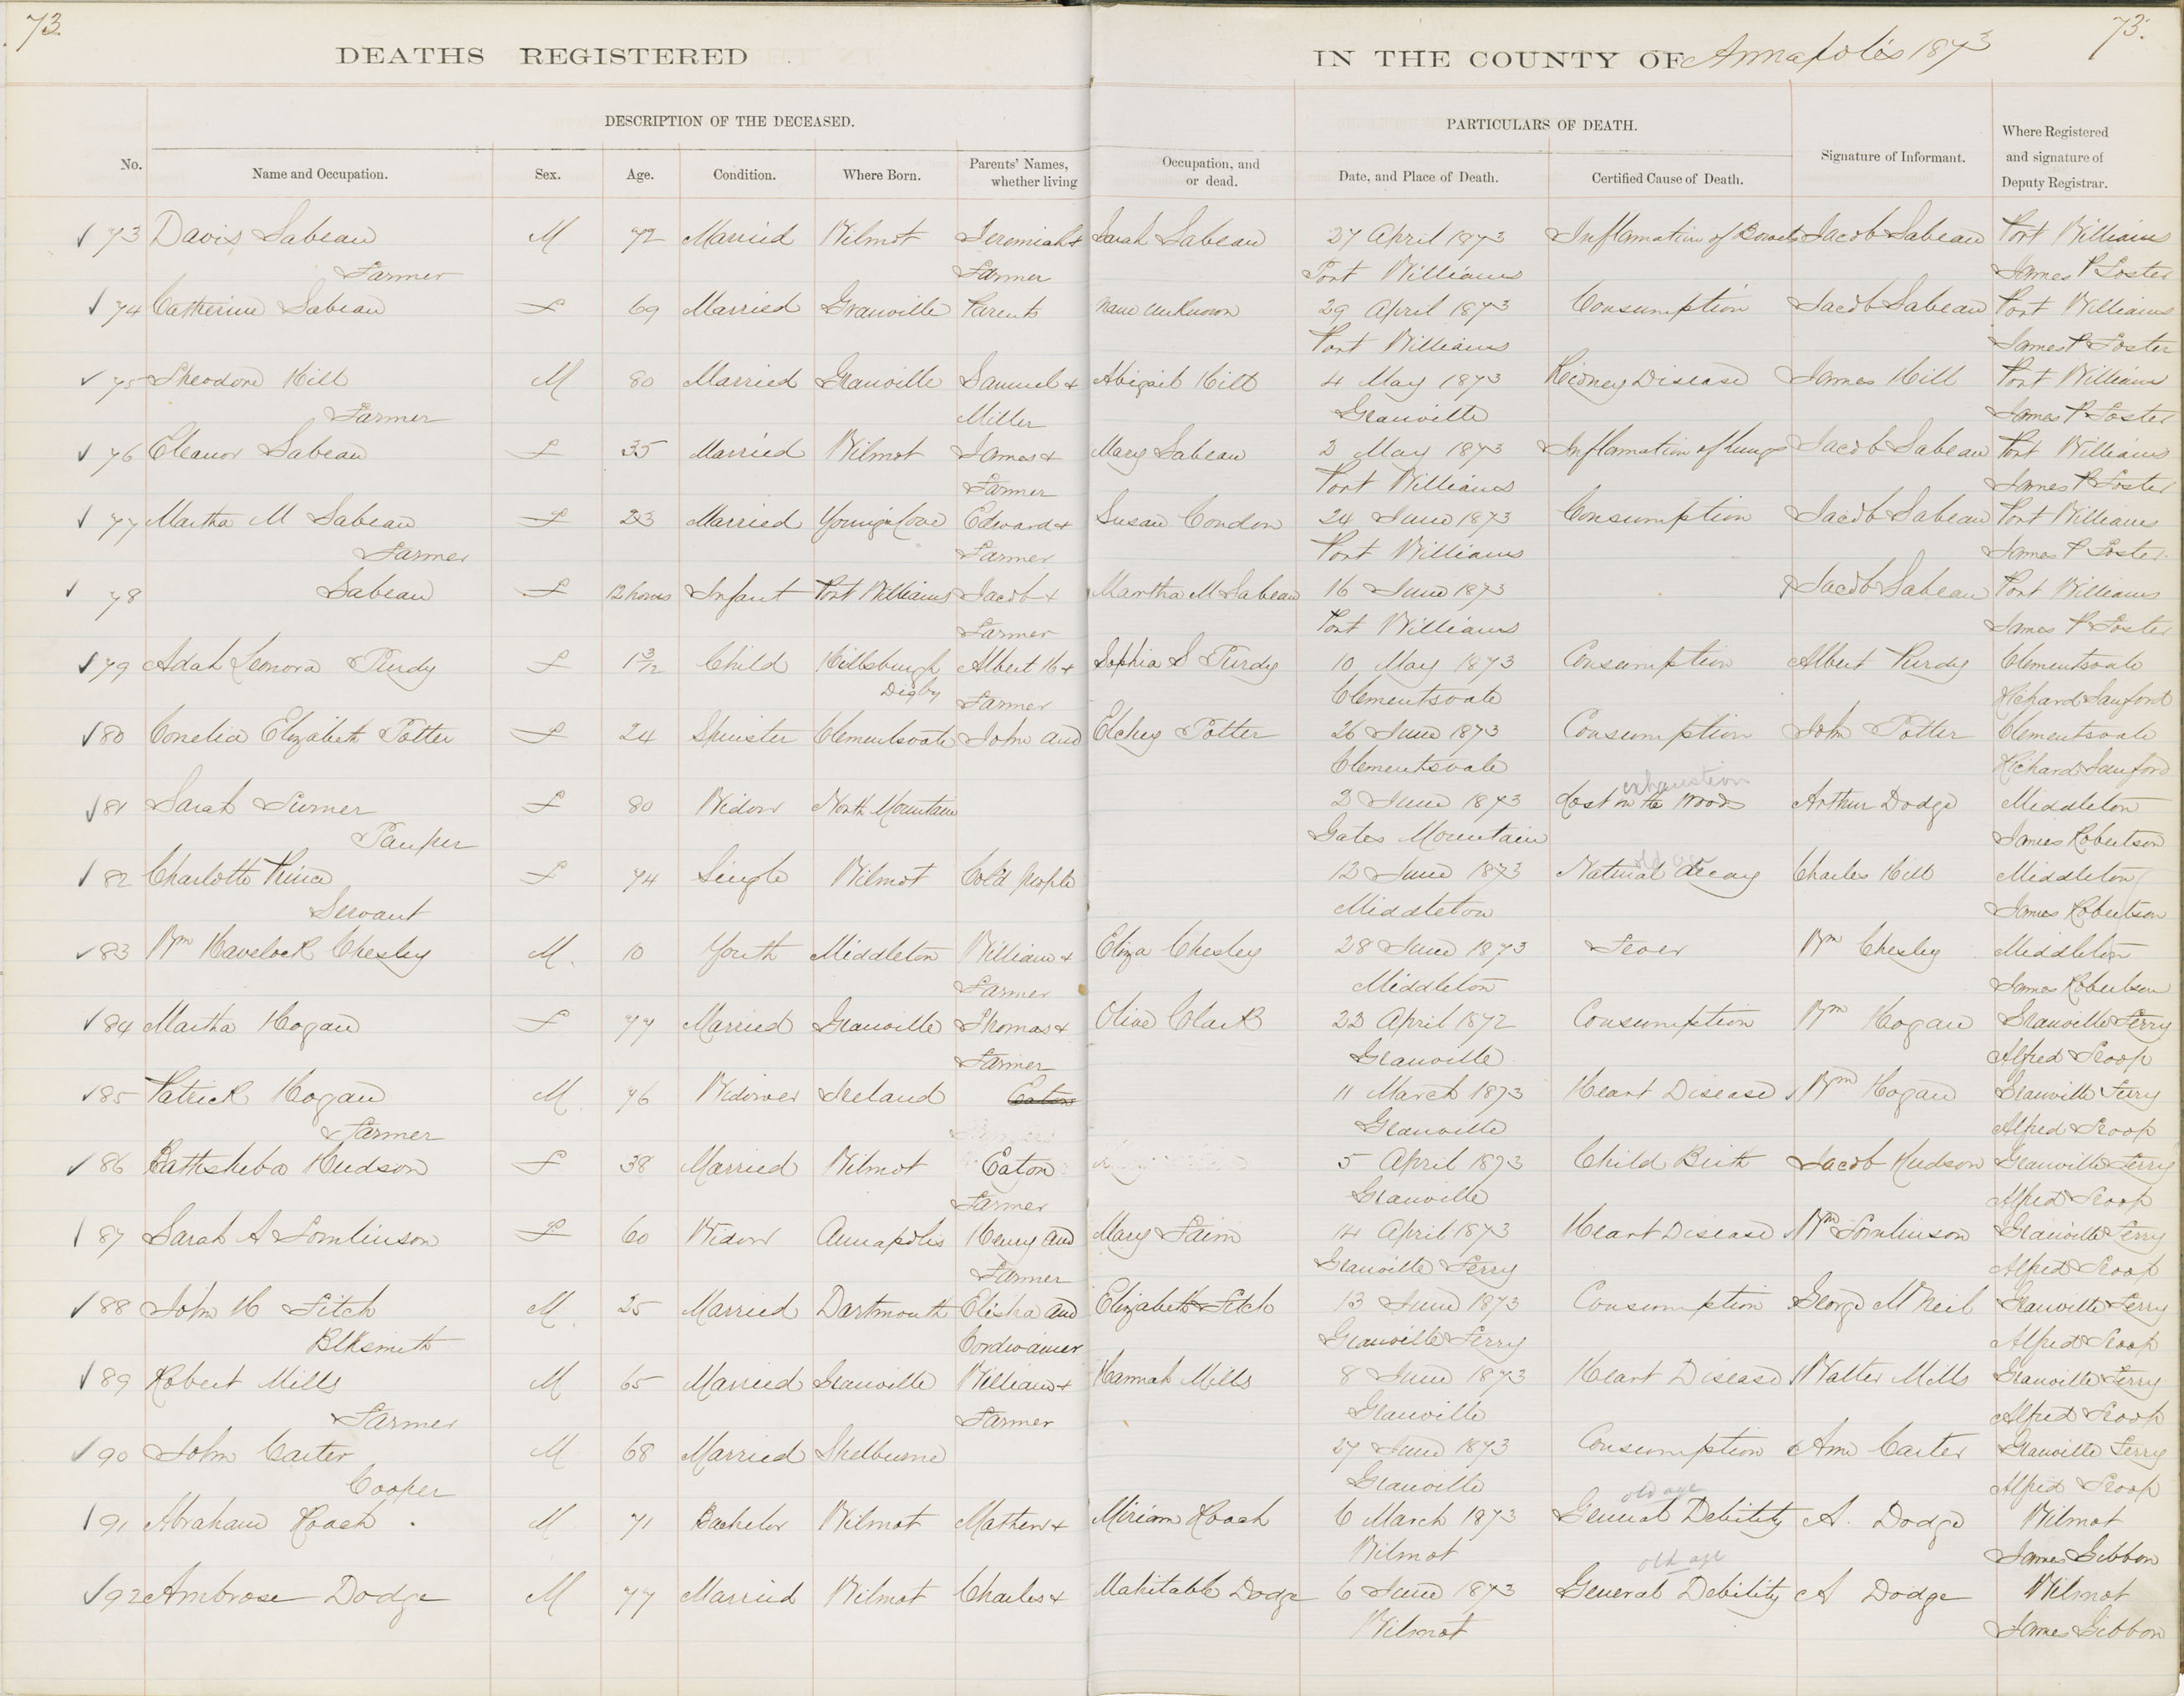 73.
73.
DEATHS REGISTERED IN THE COUNTY OF Annapolis 1873
DESCRIPTION OF THE DECEASED. PARTICULARS OF DEATH.
No. Name and Occupation. Sex. Age. Condition. Where Born. Parents' Names, whether living Occupation, and or dead. Date, and Place of Death. Certified Cause of Death. Signature of Informant. Where Registered and signature of Deputy Registrar.
73 Davis Sabean M 72 Married Wilmot Jeremiah & Sarah Sabean 27 April 1873 Inflamation of Bowels Jacob Sabean Port Williams
Farmer Farmer Port Williams James P Foster
74 Catherine Sabean F 69 Married Granville Parents name unknown 29 April 1873 Consumption Jacob Sabean Port Williams
Port Williams James P Foster
75 Theodore Hill M 80 Married Granville Samuel & Abigail Hill 4 May 1873 Kidney Disease James Hill Port Williams
Farmer Miller Granville James P Foster
76 Eleanor Sabean F 35 Married Wilmot James & Mary Sabean 2 May 1873 Inflamation of Lungs Jacob Sabean Port Williams
Farmer Port Williams James P Foster
77 Martha M Sabean F 23 Married Youngs Cove Edward & Susan Condon 24 June 1873 Consumption Jacob Sabean Port Williams
Farmer Farmer Port Williams James P Foster
78 Sabean F 12 hours Infant Port Williams Jacob & Martha M Sabean 16 June 1873 Jacob Sabean Port Williams
Farmer Port Williams James P Foster
79 Adah Leonora Purdy F 1 3/12 Child Hillsburgh Albert H & Sophia S Purdy 10 May 1873 Consumption Albert Purdy Clementsvale
Digby Farmer Clementsvale Richard Sanford
80 Conelia Elizabeth Potter F 24 Spinster Clementsvale John and Elchey Potter 26 June 1873 Consumption John Potter Clementsvale
Clementsvale Richard Sanford
exhaustion
81 Sarah Turner F 80 Widow North Mountain 2 June 1873 Lost in the Woods Arthur Dodge Middleton
Pauper Gates Mountain James Robertson
old age
82 Charlotte Prince F 74 Single Wilmot Col'd people 12 June 1873 Natural decay Charles Hill Middleton
Servant Middleton James Robertson
83 Wm Havelock Chesley M. 10 Youth Middleton William & Eliza Chesley 28 June 1873 Fever Wm Chesley Middleton
Farmer Middleton James Robertson
84 Martha Hogan F 77 Married Granville Thomas & Olive Clark 22 April 1872 Consumption Wm Hogan Granville Ferry
Farmer Granville Alfred Troop
85 Patrick Hogan M. 76 Widower Ireland Eaton 11 March 1873 Heart Disease Wm Hogan Granville Ferry
Farmer Granville Alfred Troop
86 Bathsheba Hudson F 38 Married Wilmot Eaton 5 April 1873 Child Birth Jacob Hudson Granville Ferry
Farmer Granville Alfred Troop
87 Sarah A Tomlinson F 60 Widow Annapolis Henry and Mary Fairn 14 April 1873 Heart Disease Wm Tomlinson Granville Ferry
Farmer Granville Ferry Alfred Troop
88 John H Fitch M. 25 Married Dartmouth Elisha and Elizabeth Fitch 13 June 1873 Consumption George McNeil Granville Ferry
Blksmith Cordwainer Granville Ferry Alfred Troop
89 Robert Mills M 65 Married Granville William & Hannah Mills 8 June 1873 Heart Disease Walter Mills Granville Ferry
Farmer Farmer Granville Alfred Troop
90 John Carter M 68 Married Shelburne 27 June 1873 Consumption Ann Carter Granville Ferry
Cooper Granville Alfred Troop
old age
91 Abraham Roach M 71 Bachelor Wilmot Mathew & Miriam Roach 6 March 1873 General Debility A. Dodge Wilmot
Wilmot James Gibbon
old age
92 Ambrose Dodge M 77 Married Wilmot Charles & Mahitable Dodge 6 June 1873 General Debility A Dodge Wilmot
Wilmot James Gibbon